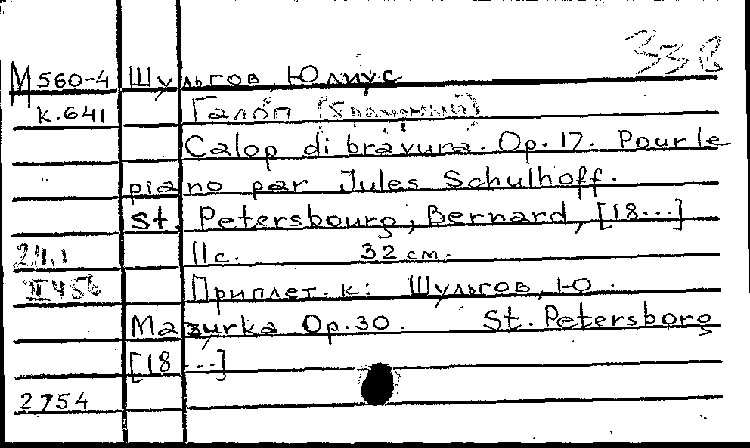 33 В
М 560-4 Шульгов, Юлиус
к.641 Галоп [бравурный]
Calop di bravura. Op. 17. Pour le
piano par Jules Schulhoff.
St. Petersbourg, Bernard, [18...]
11 с. 32 см.
Приплет. к: Шульгов, Ю.
Мазурка Op. 30. St. Petersborg
[18...]
2754